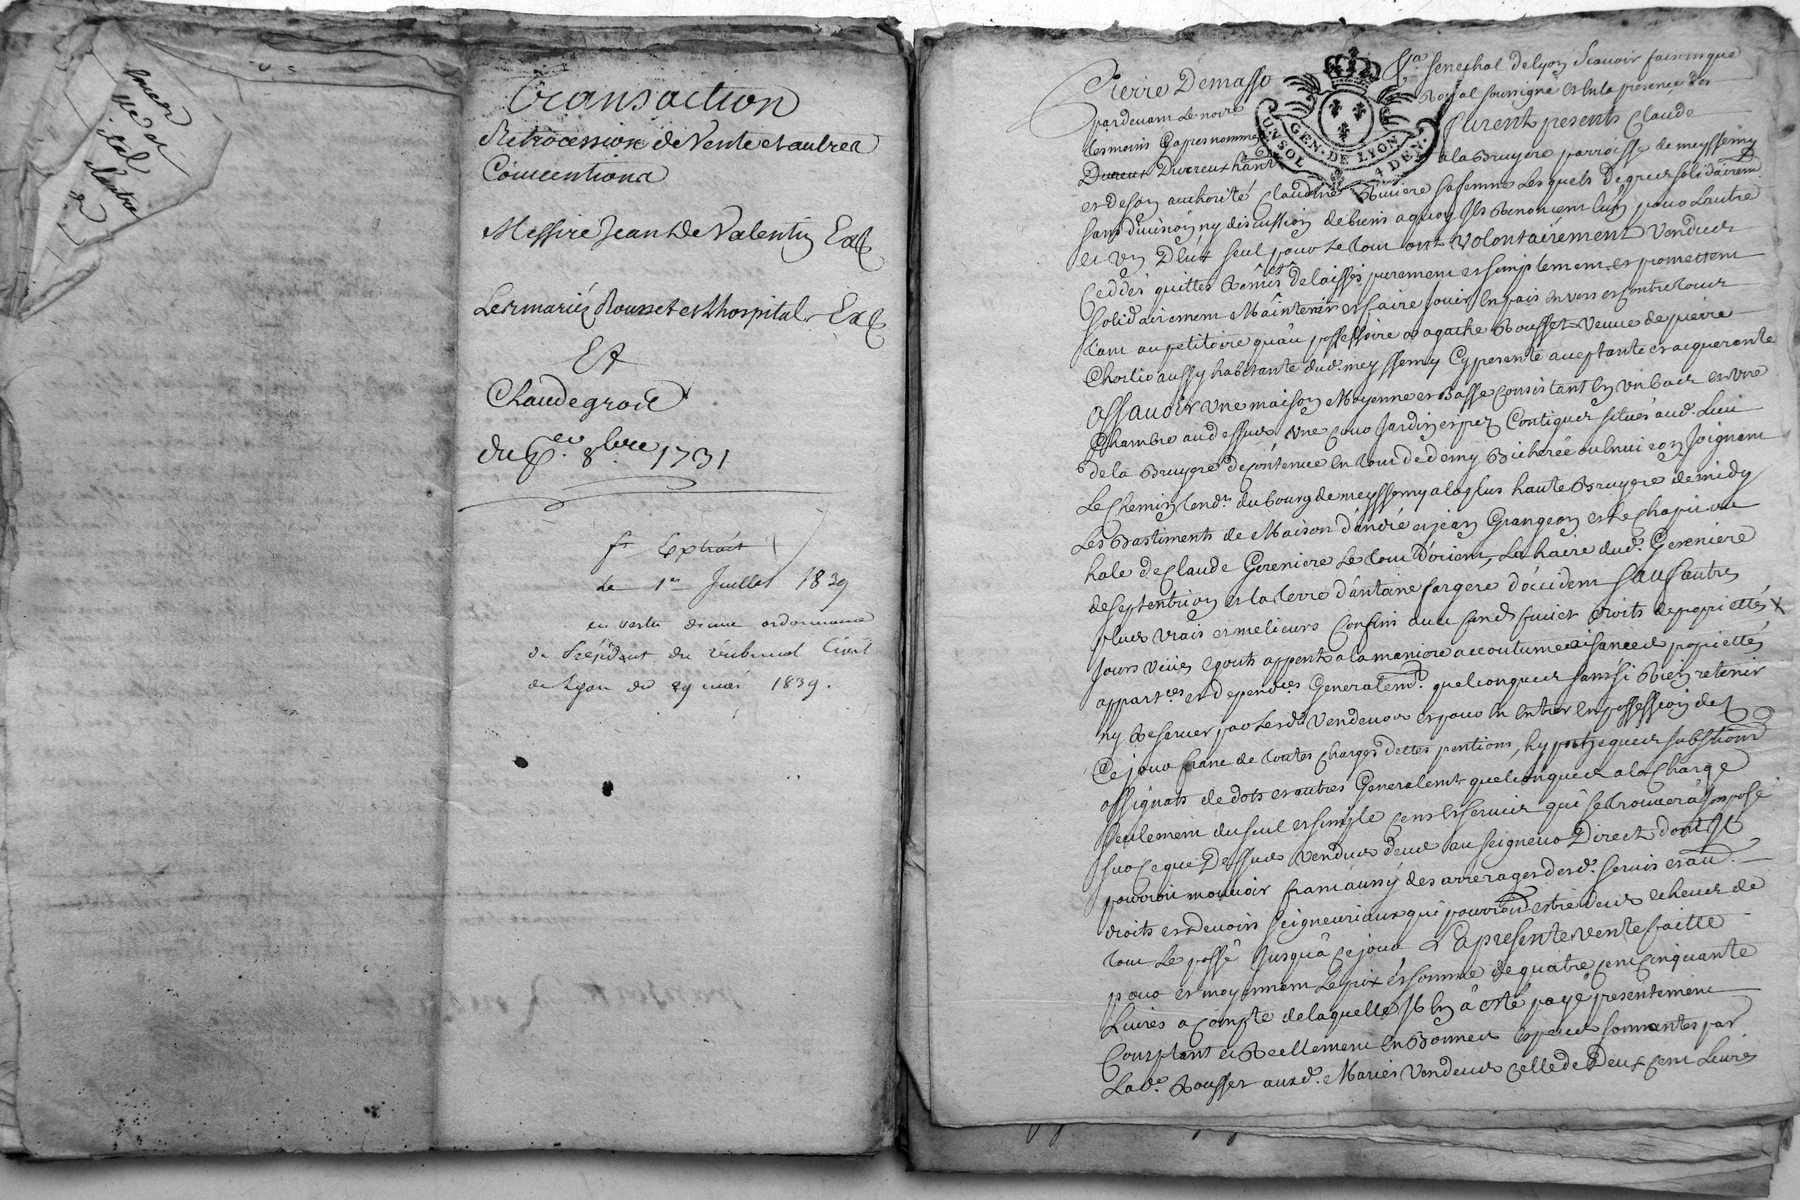 Transaction
Retrocession de Vente et autres
Conventions
Messire Jean de Valentin Ex
Les mariés Rousset et Lhospital Ex
Et
Claude
du 8bre 1731
Extrait
Le 1er Juillet 1839
en vertu d'une ordonnance
du Président du tribunal Civil
de Lyon du 29 mai 1839.
Pierre Demasso Senechal de Lyon Scavoir faisons que
pardevant Le nore Royal soussigné et en la presence des
tesmoins cy apres nommés furent presents Claude
UN SOL GEN. DE LYON 4 DEN.
a la Bruyere parroisse de meyssemy
et de son authorité Claudine Riviere sa femme Lesquels de gré et solidairemt
sans division ny discussion de biens a quoy Ils Renoncent Lun pour Lautre
et un Deux seul pour Le tout ont volontairement vendus
Ceddés quittés Remis et delaissés purement et simplement et promettent
solidairement Maintenir et faire Jouir En paix Envers et contre tous
tant au petitoire quau possessoire a agathe Rousset veuve de pierre
aussy habitante dud. meyssemy Cy presente acceptante et acquerante
assavoir une maison Moyenne et Basse Consistant En un bas et une
Chambre au dessus une Cour Jardin Contigues situés aud. Lieu
de la Bruyere de Contenue En tout de demy Bicherée ou Environ Joignant
Le Chemin tendt. du bourg de meyssemy a la plus haute Bruyere de midy
Les Bastiments de Maison d'andré et jean Grangeon et Le
hale de Claude Gereniere Le tout D'orient, La haire dud. Gereniere
de septentrion et la terre d'antoine fargere d'occident sauf autres
plus vrais et melieurs Confins avec fonds droits de proprietés
Jours vües Egouts appents a la maniere accoutumée aisances proprietés
appartces. et dependces. Generalemt. quelconques sans si Rien retenir
ny Reserver par Lesd. Vendeurs et pour En Entrer En possession des
Ce jour franc de toutes Charges dettes pentions, hypotheques substions
assignats de dots et autres Generalemt quelconques a la Charge
seulement du seul et simple Cens et servis qui se trouvera Imposé
sur Ce que Dessus vendus deue au seigneur Direct dont Il
pouvoit mouvoir franc aussy des arrerages desd. servis et aud.
droits et devoirs seigneuriaux qui pourroient estre deus Echeus de
tout Le passé Jusqu'a Ce jour La presente vente faitte
pour et moyennant Le prix et somme de quatre Cent Cinquante
Livres a Compte de laquelle Il En a esté payé presentement
Comptant et Reellement En Bonnes Especes sonnantes par
Lad.e Rousset auxd. Mariés Vendeurs Celle de Deux Cent Livres